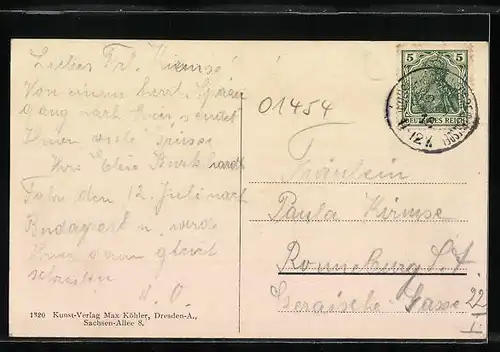 Liebes Frl. Kirmse
Von einem herrl. Spazier
gang nach hier, sendet
Ihnen viele Grüsse
Ihre Elsie Burkhardt
Fahr den 12. Juli nach
Budapest u. werde
Ihnen dann gleich
schreiben
D. O.
1320 Kunst-Verlag Max Köhler, Dresden-A.,
Sachsen-Allee 8.
01454
5 5
DEUTSCHES REICH
Fräulein
Paula Kirmse
Ronneburg S. A.
Geraische Gasse 22
I.